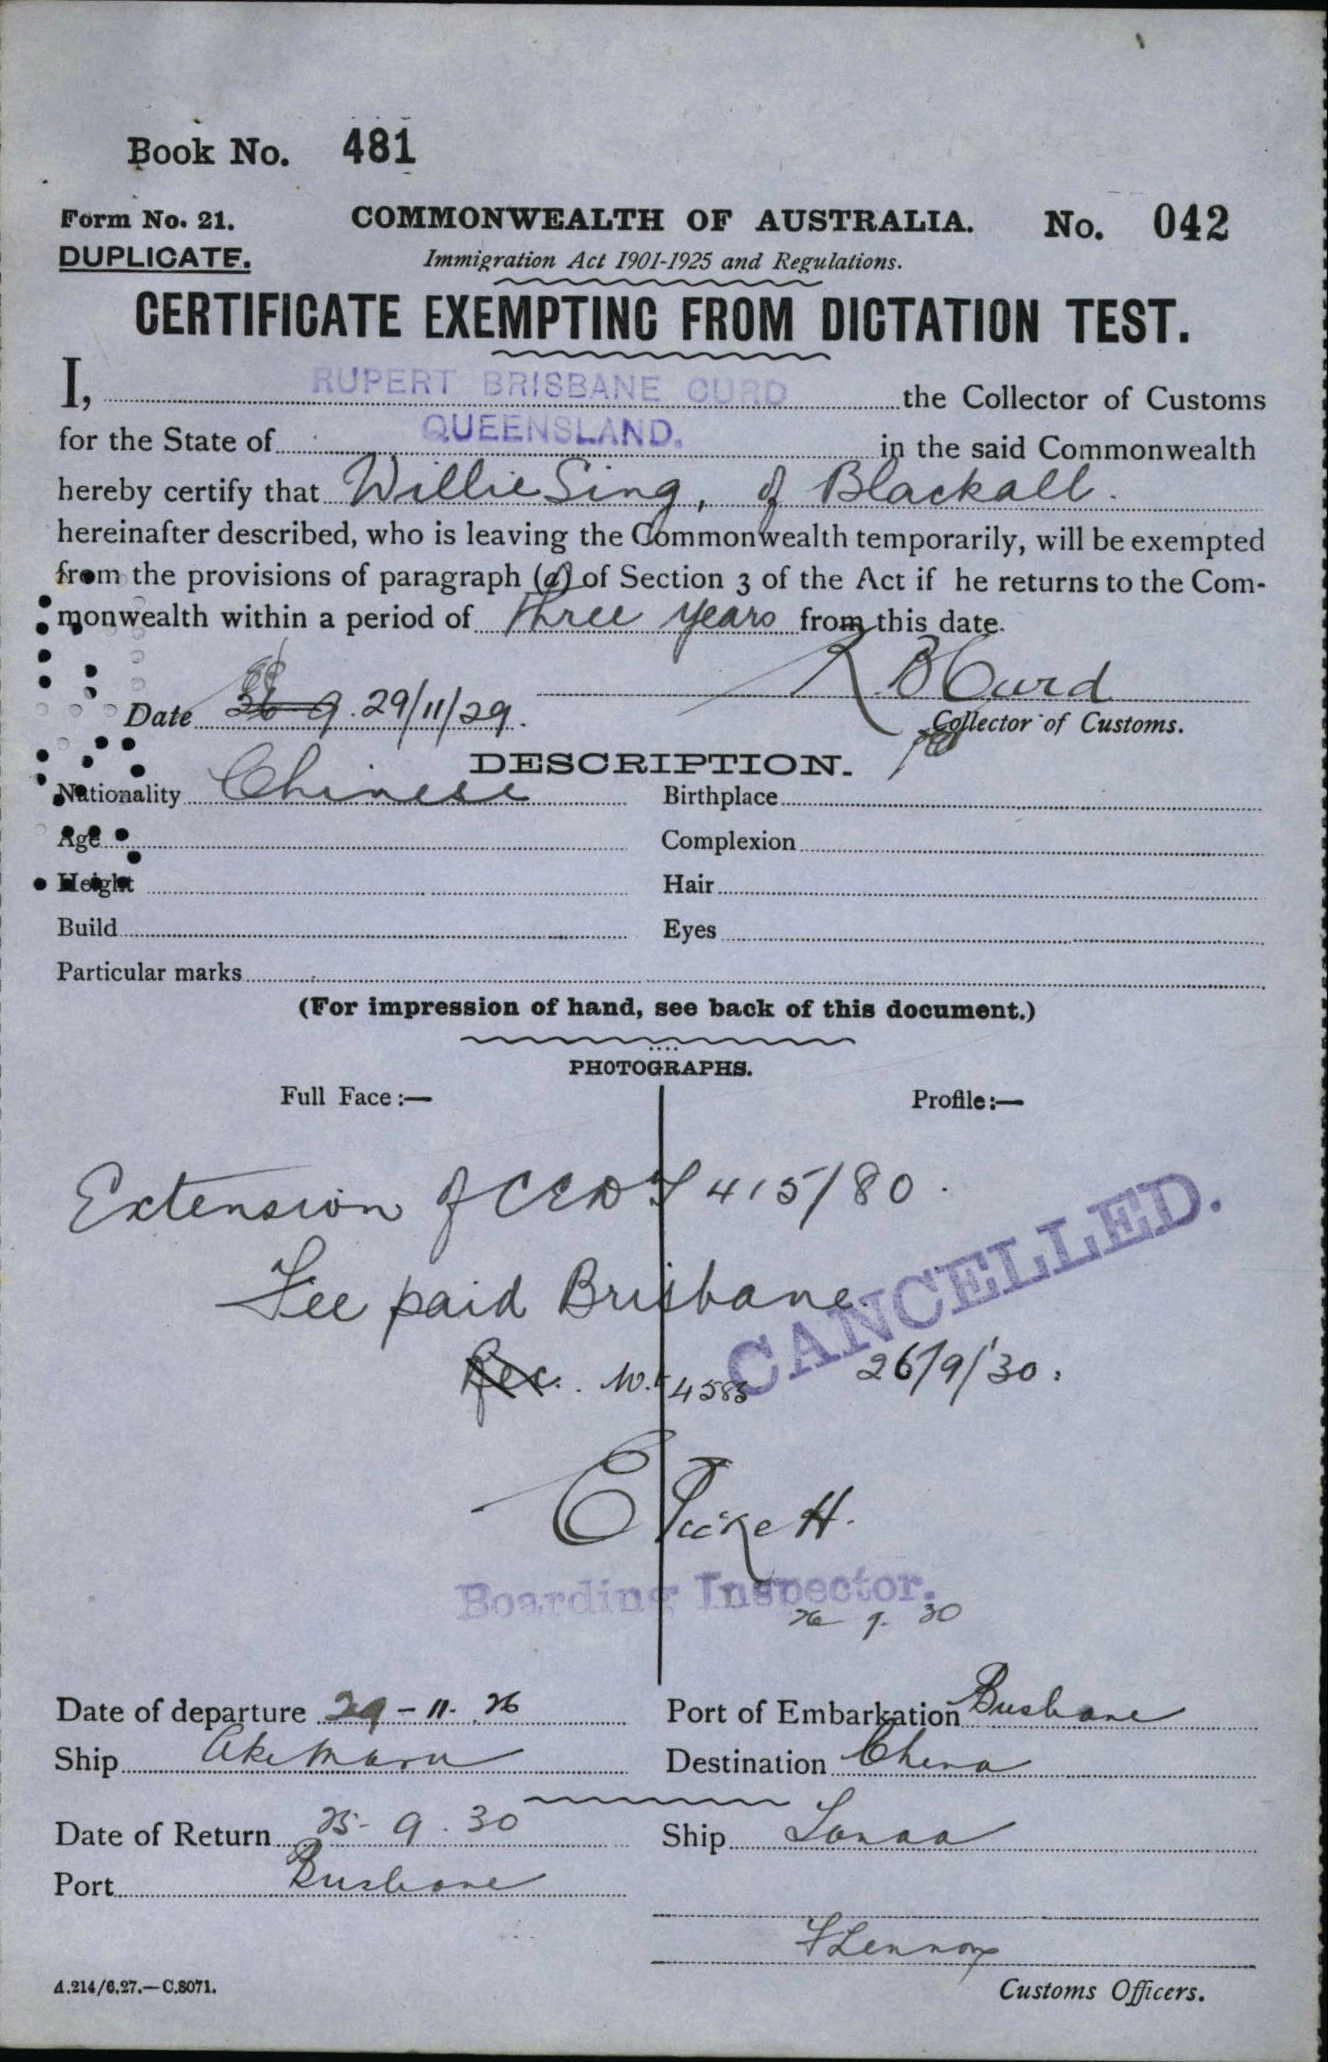 Book No. 481
Form No. 21. COMMONWEALTH OF AUSTRALIA. No. 042
DUPLICATE. Immigration Act 1901-1925 and Regulations.
CERTIFICATE EXEMPTING FROM DICTATION TEST.
I, RUPERT BRISBANE CURD the Collector of Customs
for the State of QUEENSLAND. in the said Commonwealth
hereby certify that Willie Sing, of Blackall.
hereinafter described, who is leaving the Commonwealth temporarily, will be exempted
from the provisions of paragraph (a) of Section 3 of the Act if he returns to the Com-
monwealth within a period of three years from this date.
R B Curd
Date 29/11/29. Collector of Customs.
DESCRIPTION.
Nationality Chinese Birthplace
Age Complexion
Height Hair
Build Eyes
Particular marks
(For impression of hand, see back of this document.)
PHOTOGRAPHS.
Full Face :— Profile :—
Extension of CEDT 415/80.
Fee paid Brisbane.
CANCELLED.
Rec. No. 4583 26/9/30.
E Pickett.
Boarding Inspector.
26 9. 30
Date of departure 29-11-26 Port of Embarkation Brisbane
Ship Aki Maru Destination China
Date of Return 25-9.30 Ship Tanda
Port Brisbane
F Lennox
A.214/6.27.—C.8071. Customs Officers.